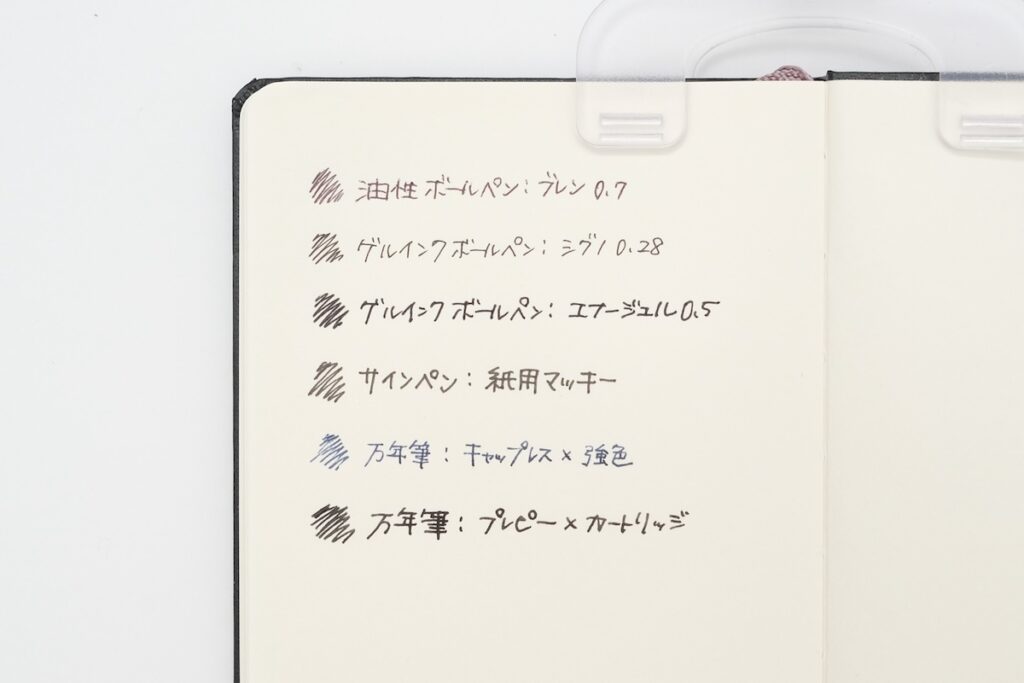 油性ボールペン：ブレン 0.7
ゲルインクボールペン：シグノ 0.28
ゲルインクボールペン：エナージェル 0.5
サインペン：紙用マッキー
万年筆：キャップレス×強色
万年筆：プレピー×カートリッジ